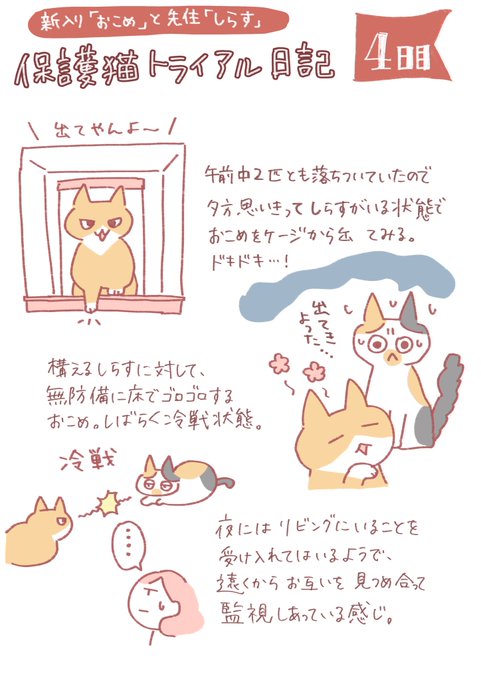 新入り「おこめ」と先住「しらす」
保護猫トライアル日記
4日目
出てやんよ〜
午前中2匹とも落ちついていたので
夕方思いきってしらすがいる状態で
おこめをケージから出してみる。
ドキドキ…!
出てき
ようた…
構えるしらすに対して、
無防備に床でゴロゴロする
おこめ。しばらく冷戦状態。
冷戦
夜にはリビングにいることを
受け入れてはいるようで、
遠くからお互いを見つめ合って
監視しあっている感じ。